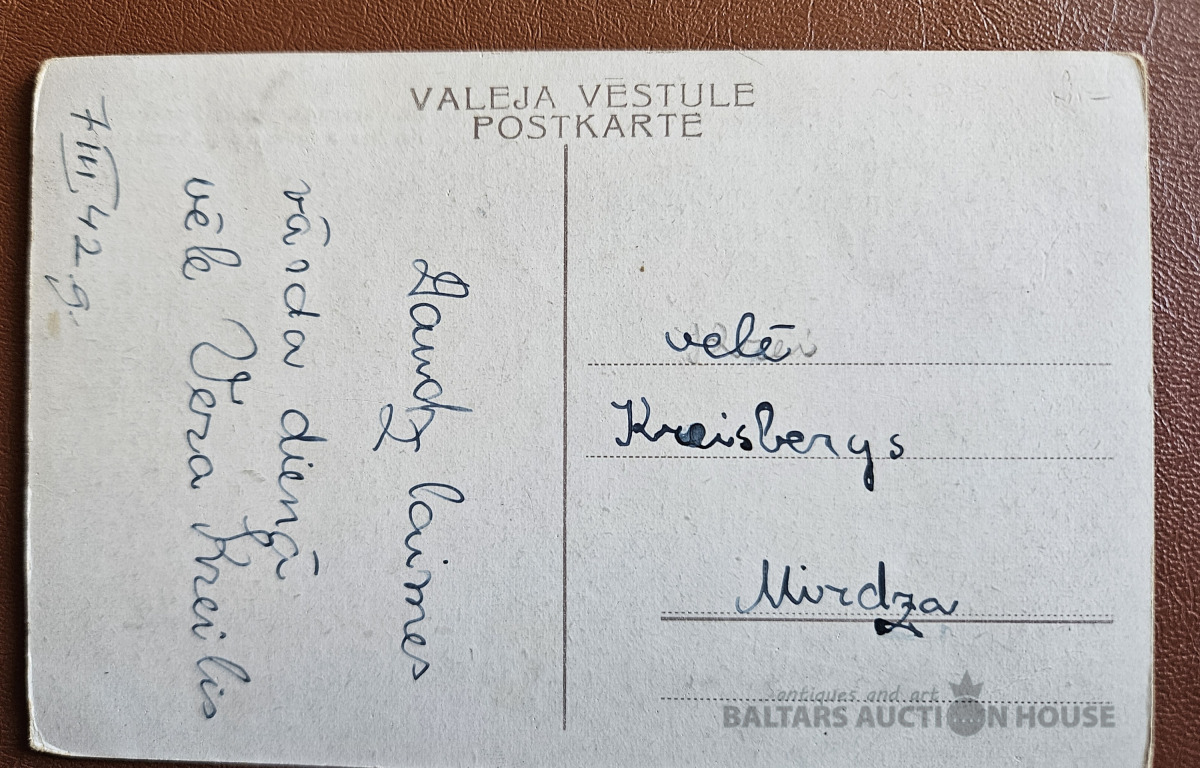 VALEJA VĒSTULE
POSTKARTE
Daudz laimes
vārda dienā
vēle Vera Kreilis
7 III 42.g.
velē
Kreisbergs
Mirdza
antiques and art
BALTARS AUCTION HOUSE